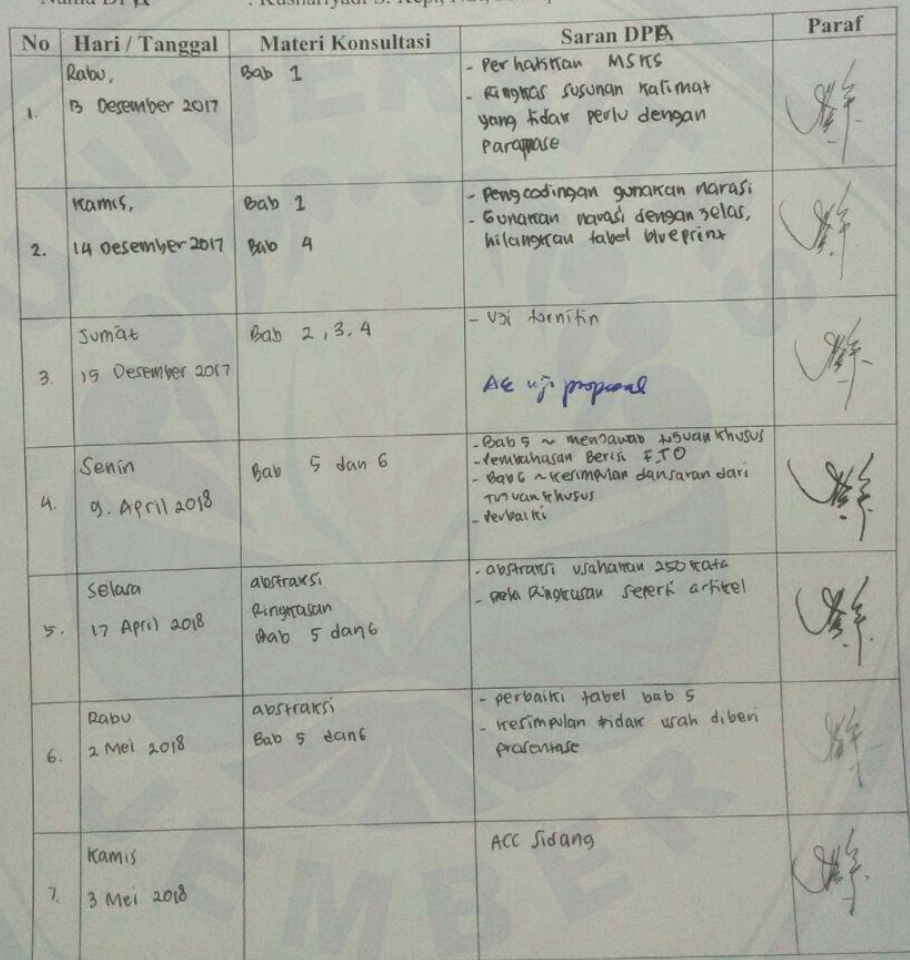 No Hari / Tanggal Materi Konsultasi Saran DPA Paraf
1. Rabu, 13 Desember 2017
Bab 1
- Perhatikan MSKS
- Ringkas susunan kalimat
yang tidak perlu dengan
2. Kamis, 14 Desember 2017
Bab 1
Bab 4
- Pengcodingan gunakan narasi
- Gunakan narasi dengan jelas,
hilangkan tabel blueprint
3. Jumat 15 Desember 2017
Bab 2, 3, 4
- Uji turnitin
uji proposal
4. Senin 9. April 2018
Bab 5 dan 6
- Bab 5 ~ menjawab tujuan khusus
- Pembahasan Berisi F.T.O
- Bab 6 ~ kesimpulan dan saran dari
tujuan khusus
- Perbaiki
5. Selasa 17 April 2018
abstraksi
Ringkasan
Bab 5 dan 6
- abstraksi usahakan 250 kata
- Ringkasan seperti artikel
6. Rabu 2 Mei 2018
abstraksi
Bab 5 dan 6
- perbaiki tabel bab 5
- kesimpulan tidak usah diberi
prosentase
7. Kamis 3 Mei 2018
ACC Sidang
UNIVERSITAS
JEMBER